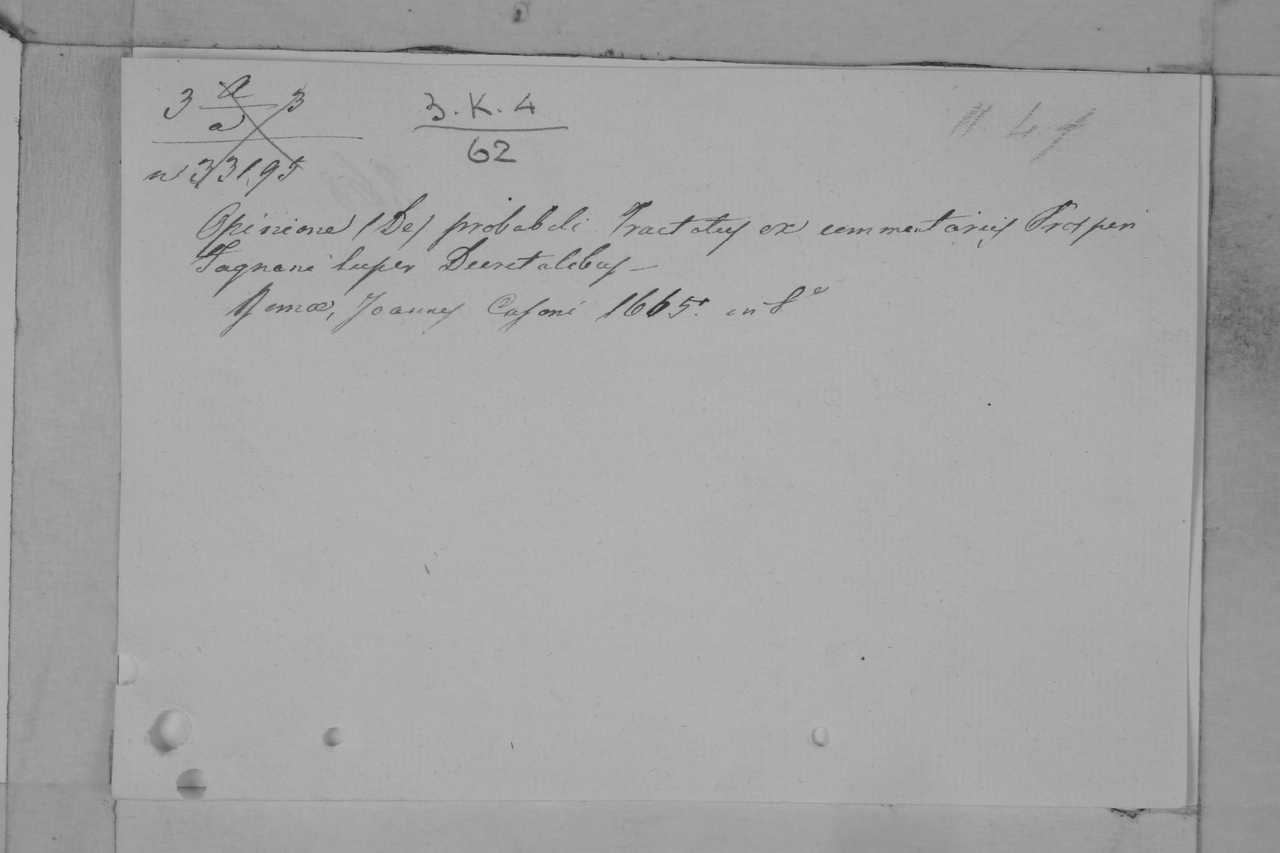 3 a 3 3.K.4
a 62
n 33195
Opinione (De) probabili Tractatus ex commentariis Prosperi
Fagnani super Decretalibus —
Romæ, Joannes Casoni 1665. in 8°